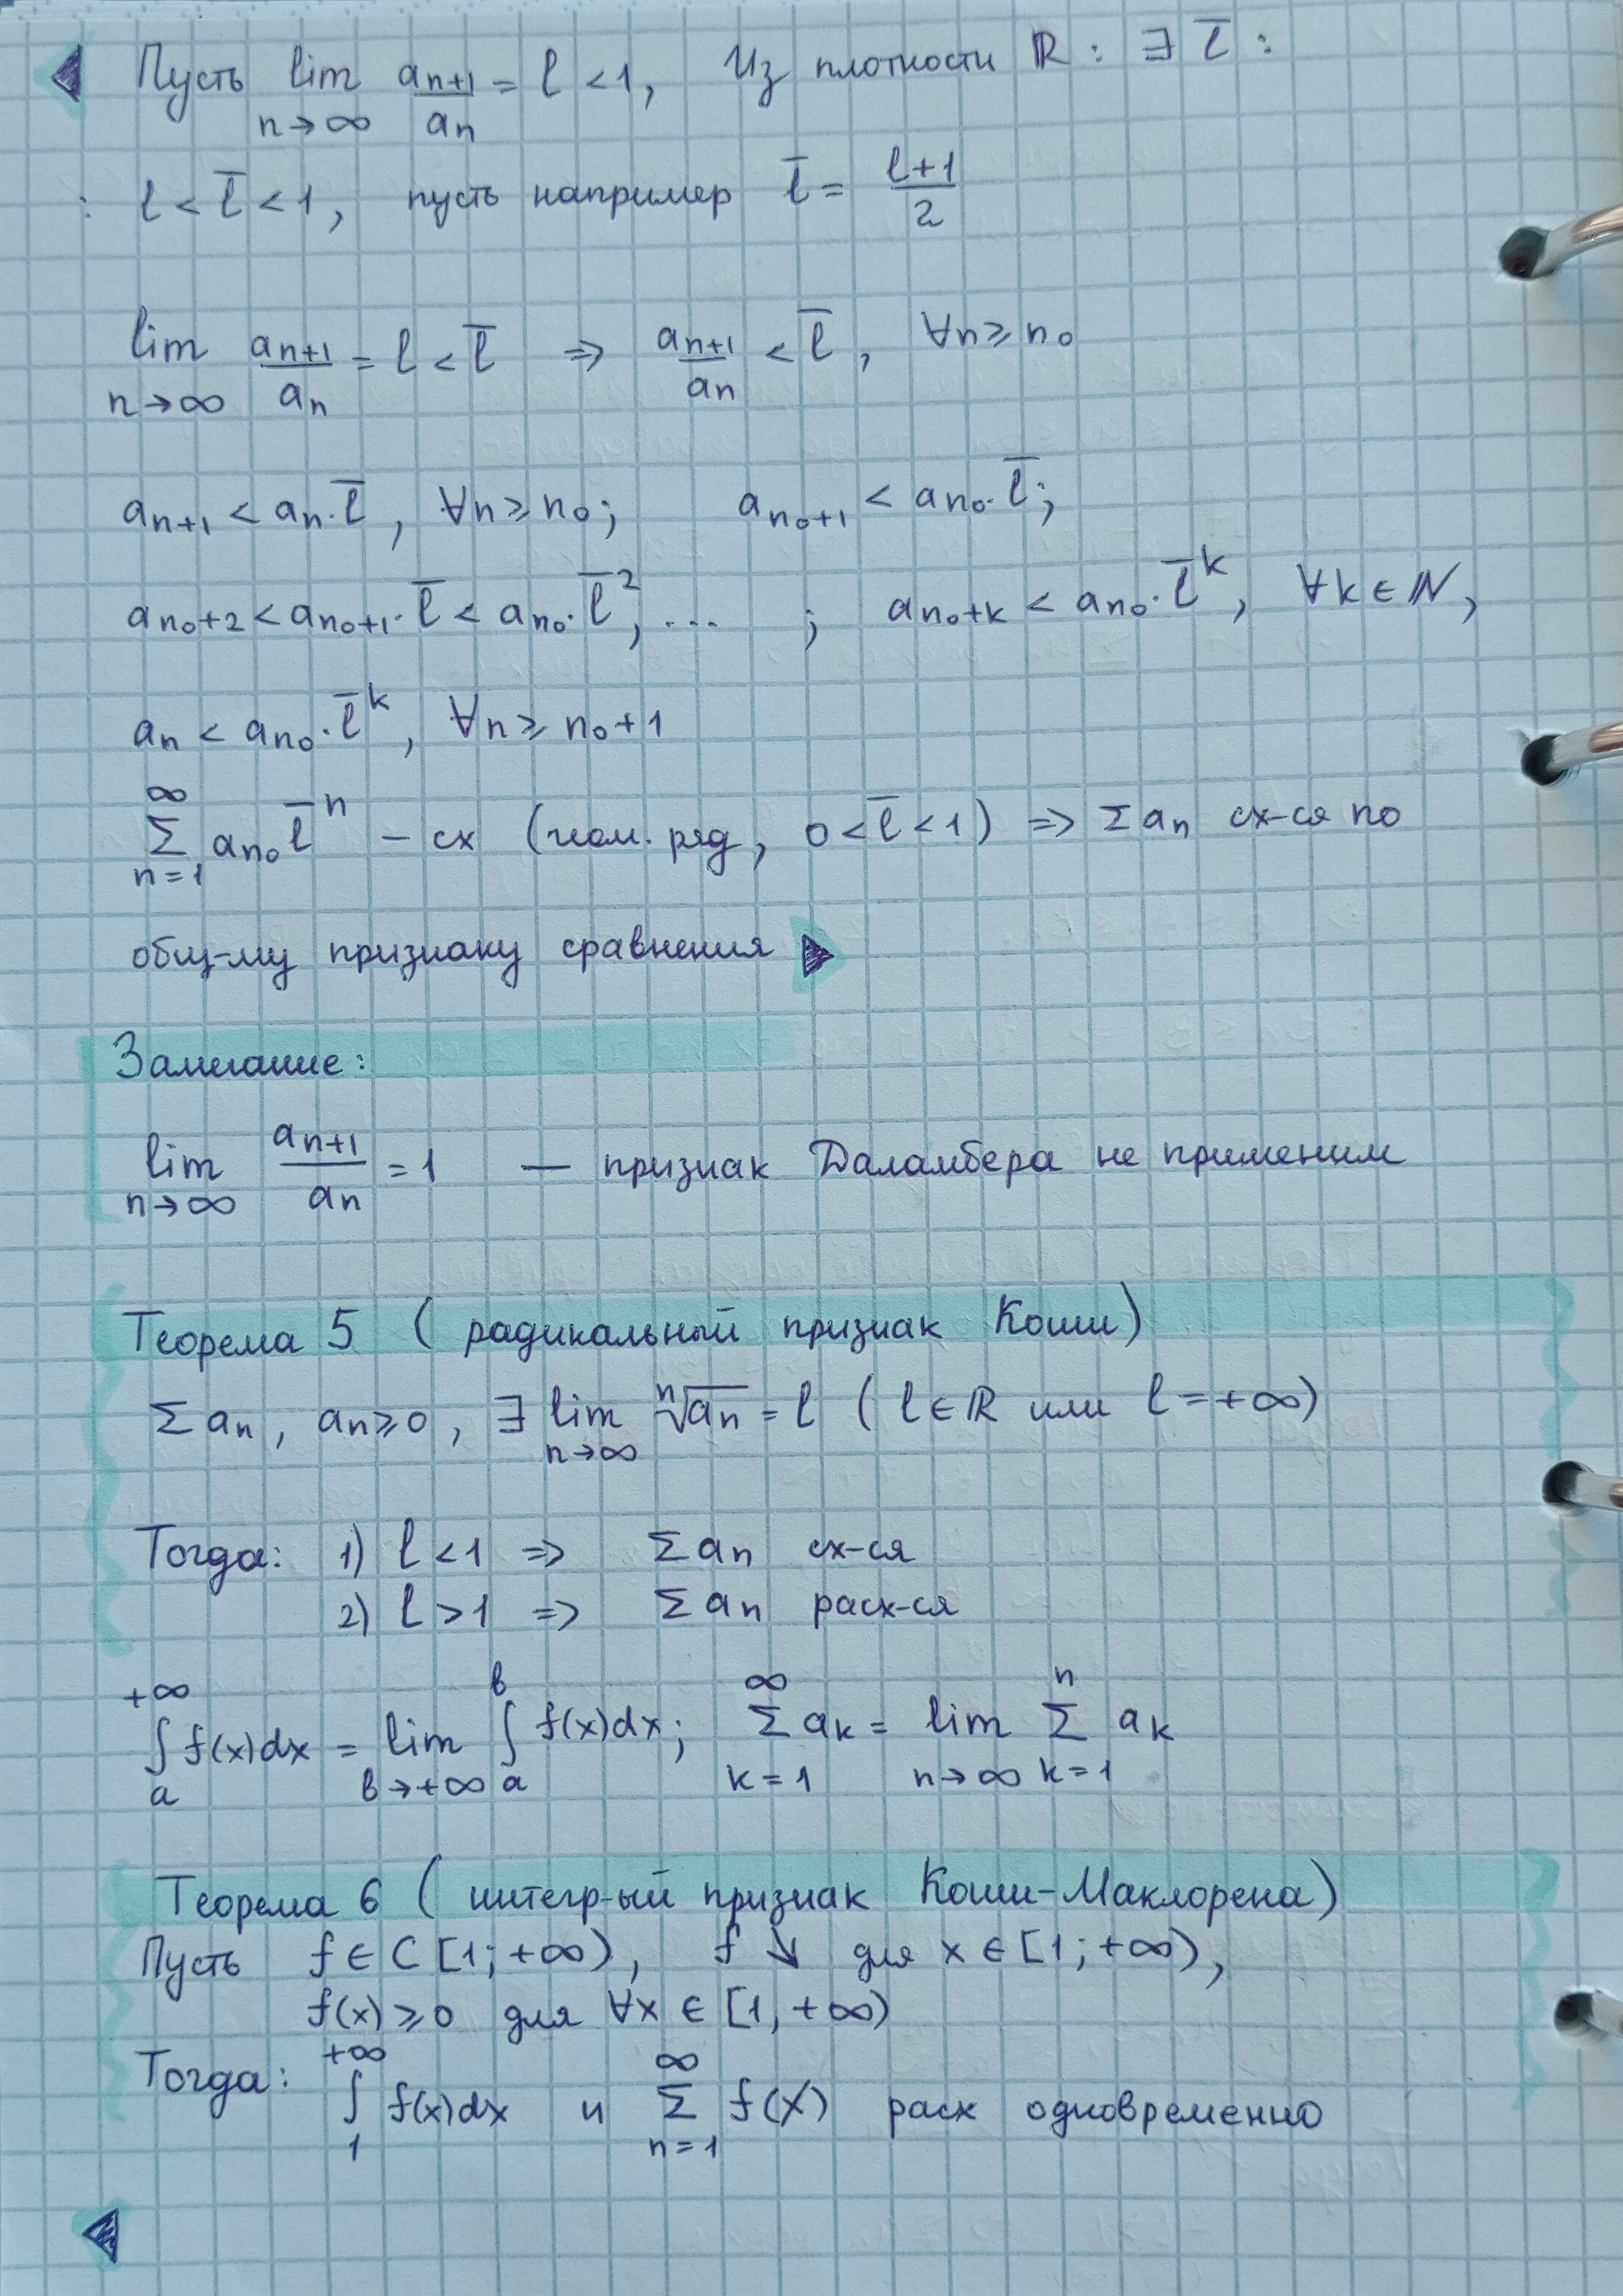 Пусть lim_{n→∞} a_{n+1}/a_n = l < 1, Из плотности ℝ: ∃ l̄ :
: l < l̄ < 1, пусть например l̄ = (l+1)/2
lim_{n→∞} a_{n+1}/a_n = l < l̄ ⇒ a_{n+1}/a_n < l̄, ∀n ≥ n₀
a_{n+1} < a_n · l̄, ∀n ≥ n₀; a_{n₀+1} < a_{n₀} · l̄;
a_{n₀+2} < a_{n₀+1} · l̄ < a_{n₀} · l̄², ... ; a_{n₀+k} < a_{n₀} · l̄^k, ∀k ∈ ℕ,
a_n < a_{n₀} · l̄^k, ∀n ≥ n₀ + 1
∑_{n=1}^{∞} a_{n₀} l̄^n – сх (геом. ряд, 0 < l̄ < 1) ⇒ ∑ a_n сх-ся по
общ-му признаку сравнения
Замечание:
lim_{n→∞} a_{n+1}/a_n = 1 — признак Даламбера не применим
Теорема 5 ( радикальный признак Коши)
∑ a_n, a_n ≥ 0, ∃ lim_{n→∞} ⁿ√a_n = l ( l ∈ ℝ или l = +∞)
Тогда: 1) l < 1 ⇒ ∑ a_n сх-ся
2) l > 1 ⇒ ∑ a_n расх-ся
∫_a^{+∞} f(x)dx = lim_{в→+∞} ∫_a^в f(x)dx; ∑_{k=1}^{∞} a_k = lim_{n→∞} ∑_{k=1}^{n} a_k
Теорема 6 ( интегр-ый признак Коши-Маклорена)
Пусть f ∈ C [1; +∞), f ↘ для x ∈ [1; +∞),
f(x) ≥ 0 для ∀x ∈ [1, +∞)
Тогда: ∫_1^{+∞} f(x)dx и ∑_{n=1}^{∞} f(x) расх одновременно